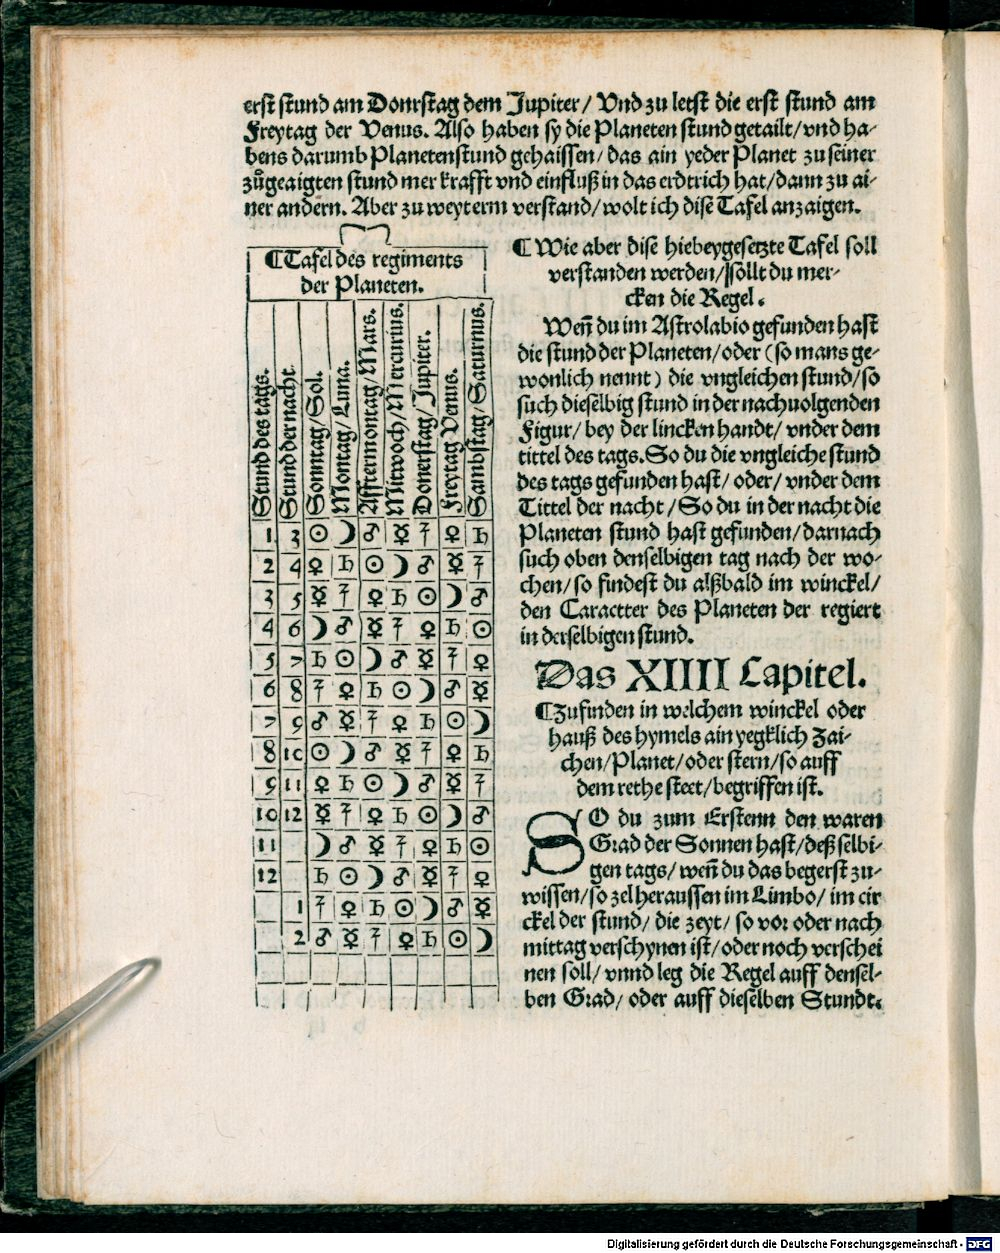 erst stund am Donrstag dem Jupiter/ Vnd zu letst die erst stund am
Freytag der Venus. Also haben sy die Planeten stund getailt/vnd ha-
bens darumb Planetenstund gehaissen/das ain yeder Planet zu seiner
zůgeaigten stund mer krafft vnd einfluß in das erdtrich hat/dann zu ai-
ner andern. Aber zu weyterm verstand/wolt ich dise Tafel anzaigen.
¶Tafel des regiments
der Planeten.
Stund des tags.
Stund der nacht.
Sonntag/Sol.
Montag/Luna.
Afftermontag/Mars.
Mitwoch/Mercurius.
Donerstag/Jupiter.
Freytag Venus.
Sambstag/Saturnus.
1 3 ☉ ☽ ♂ ☿ ♃ ♀ ♄
2 4 ♀ ♄ ☉ ☽ ♂ ☿ ♃
3 5 ☿ ♃ ♀ ♄ ☉ ☽ ♂
4 6 ☽ ♂ ☿ ♃ ♀ ♄ ☉
5 7 ♄ ☉ ☽ ♂ ☿ ♃ ♀
6 8 ♃ ♀ ♄ ☉ ☽ ♂ ☿
7 9 ♂ ☿ ♃ ♀ ♄ ☉ ☽
8 10 ☉ ☽ ♂ ☿ ♃ ♀ ♄
9 11 ♀ ♄ ☉ ☽ ♂ ☿ ♃
10 12 ☿ ♃ ♀ ♄ ☉ ☽ ♂
11 ☽ ♂ ☿ ♃ ♀ ♄ ☉
12 ♄ ☉ ☽ ♂ ☿ ♃ ♀
1 ♃ ♀ ♄ ☉ ☽ ♂ ☿
2 ♂ ☿ ♃ ♀ ♄ ☉ ☽
¶Wie aber dise hiebeygesetzte Tafel soll
verstanden werden/sollt du mer-
cken die Regel.
Weñ du im Astrolabio gefunden hast
die stund der Planeten/oder (so mans ge-
wonlich nennt) die vngleichen stund/so
such dieselbig stund in der nachuolgenden
Figur/ bey der lincken handt/ vnder dem
tittel des tags. So du die vngleiche stund
des tags gefunden hast/ oder/ vnder dem
Tittel der nacht/So du in der nacht die
Planeten stund hast gefunden/darnach
such oben denselbigen tag nach der wo-
chen/so findest du alßbald im winckel/
den Caractter des Planeten der regiert
in derselbigen stund.
Das XIIII Capitel.
¶Zufinden in welchem winckel oder
hauß des hymels ain yegklich Zai-
chen/Planet/oder stern/so auff
dem rethe steet/begriffen ist.
SO du zum Erstenn den waren
Grad der Sonnen hast/deß selbi-
gen tags/ weñ du das begerst zu-
wissen/so zel heraussen im Limbo/ im cir
ckel der stund/ die zeyt/ so vor oder nach
mittag verschynen ist/oder noch verschei
nen soll/ vnnd leg die Regel auff densel-
ben Grad/ oder auff dieselben Stundt.
Digitalisierung gefördert durch die Deutsche Forschungsgemeinschaft - DFG